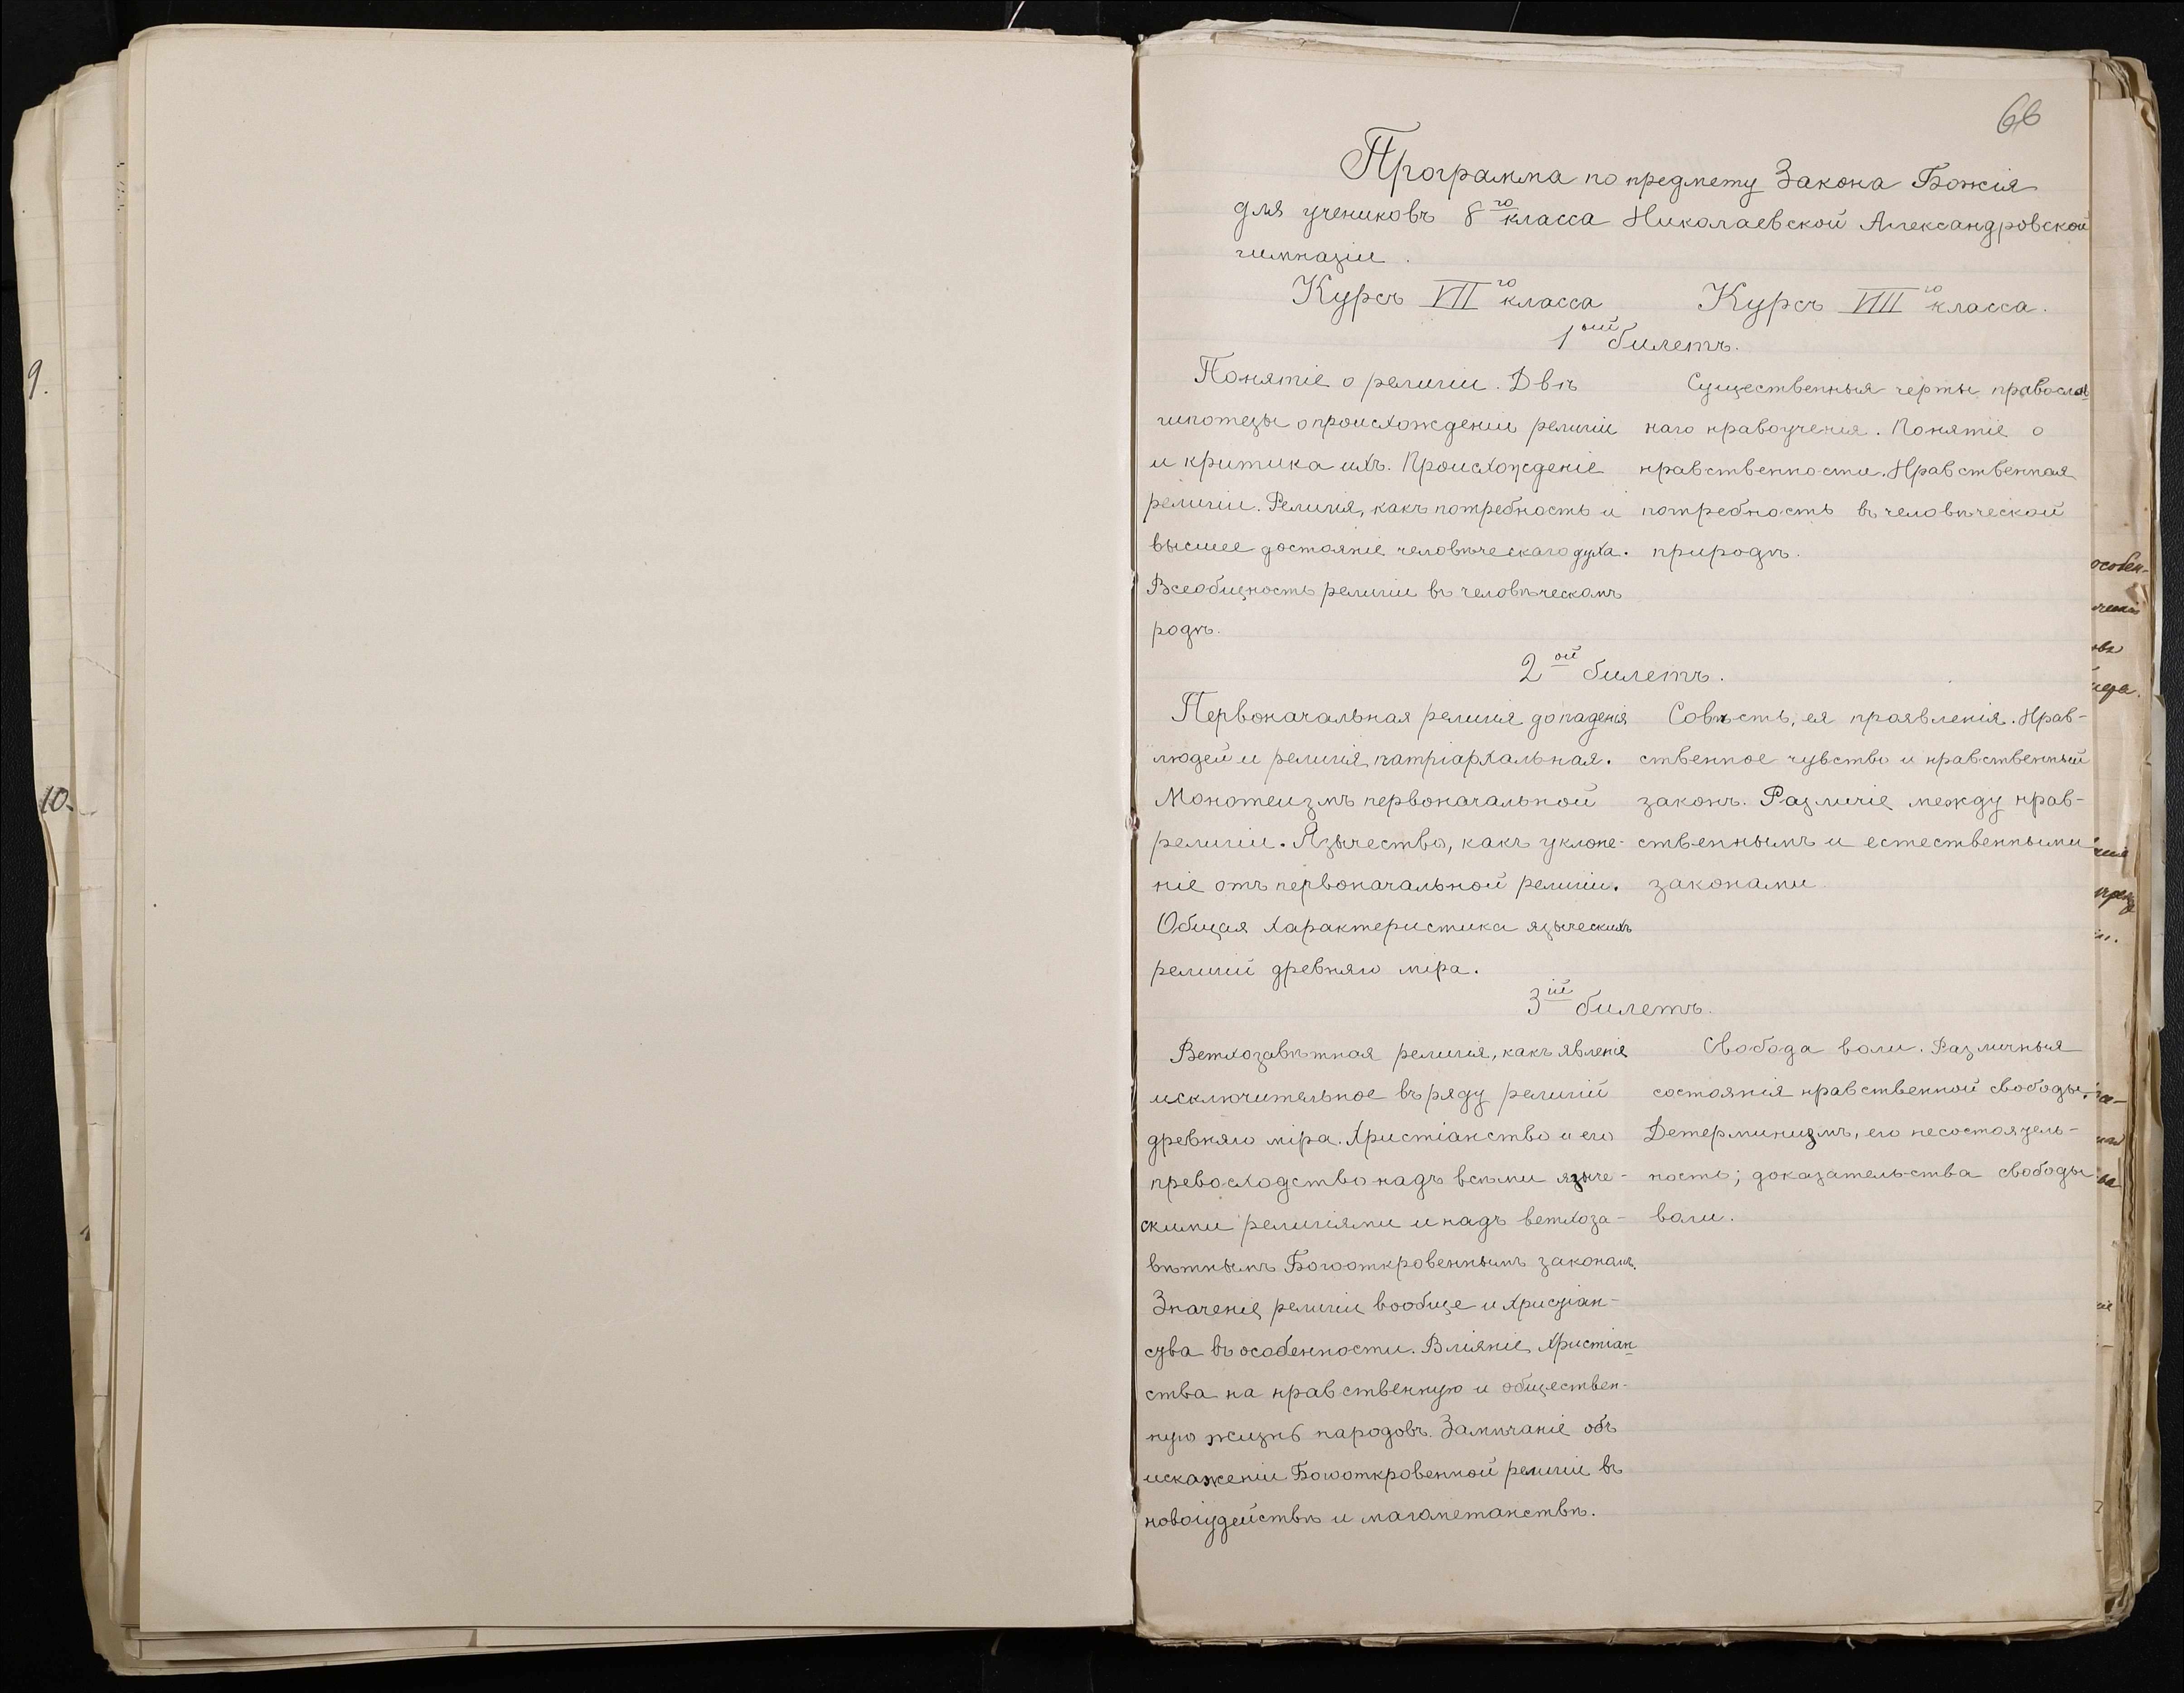 66
Программа по предмету Закона Божія
для учениковъ 8го класса Николаевской Александровской
гимназіи.
Курсъ VII го класса
Курсъ VIII го класса.
1ый билетъ.
Понятіе о религіи. Двѣ
гипотезы о происхожденіи религіи
и критика ихъ. Происхожденіе
религіи. Религія, какъ потребность и
высшее достояніе человѣческаго духа.
Всеобщность религіи въ человѣческомъ
родѣ.
Существенныя черты православ-
наго нравоученія. Понятіе о
нравственности. Нравственная
потребность въ человѣческой
природѣ.
2ой билетъ.
Первоначальная религія до паденія
людей и религія патріархальная.
Монотеизмъ первоначальной
религіи. Язычество, какъ уклоне-
ніе отъ первоначальной религіи.
Общая характеристика языческихъ
религій древняго міра.
Совѣсть, ея проявленія. Нрав-
ственное чувство и нравственный
законъ. Различіе между нрав-
ственнымъ и естественными
законами
3ій билетъ.
Ветхозавѣтная религія, какъ явленіе
исключительное въ ряду религій
древняго міра. Христіанство и его
превосходство надъ всѣми языче-
скими религіями и надъ ветхоза-
вѣтнымъ Богооткровеннымъ закономъ.
Значеніе религіи вообще и христіан-
ства въ особенности. Вліяніе Христіан-
ства на нравственную и обществен-
ную жизнь народовъ. Замѣчаніе объ
искаженіи Богооткровенной религіи въ
новоіудействѣ и магометанствѣ.
Свобода воли. Различныя
состоянія нравственной свободы.
Детерминизмъ, его несостоятель-
ность; доказательства свободы
воли.
9.
10.
особен-